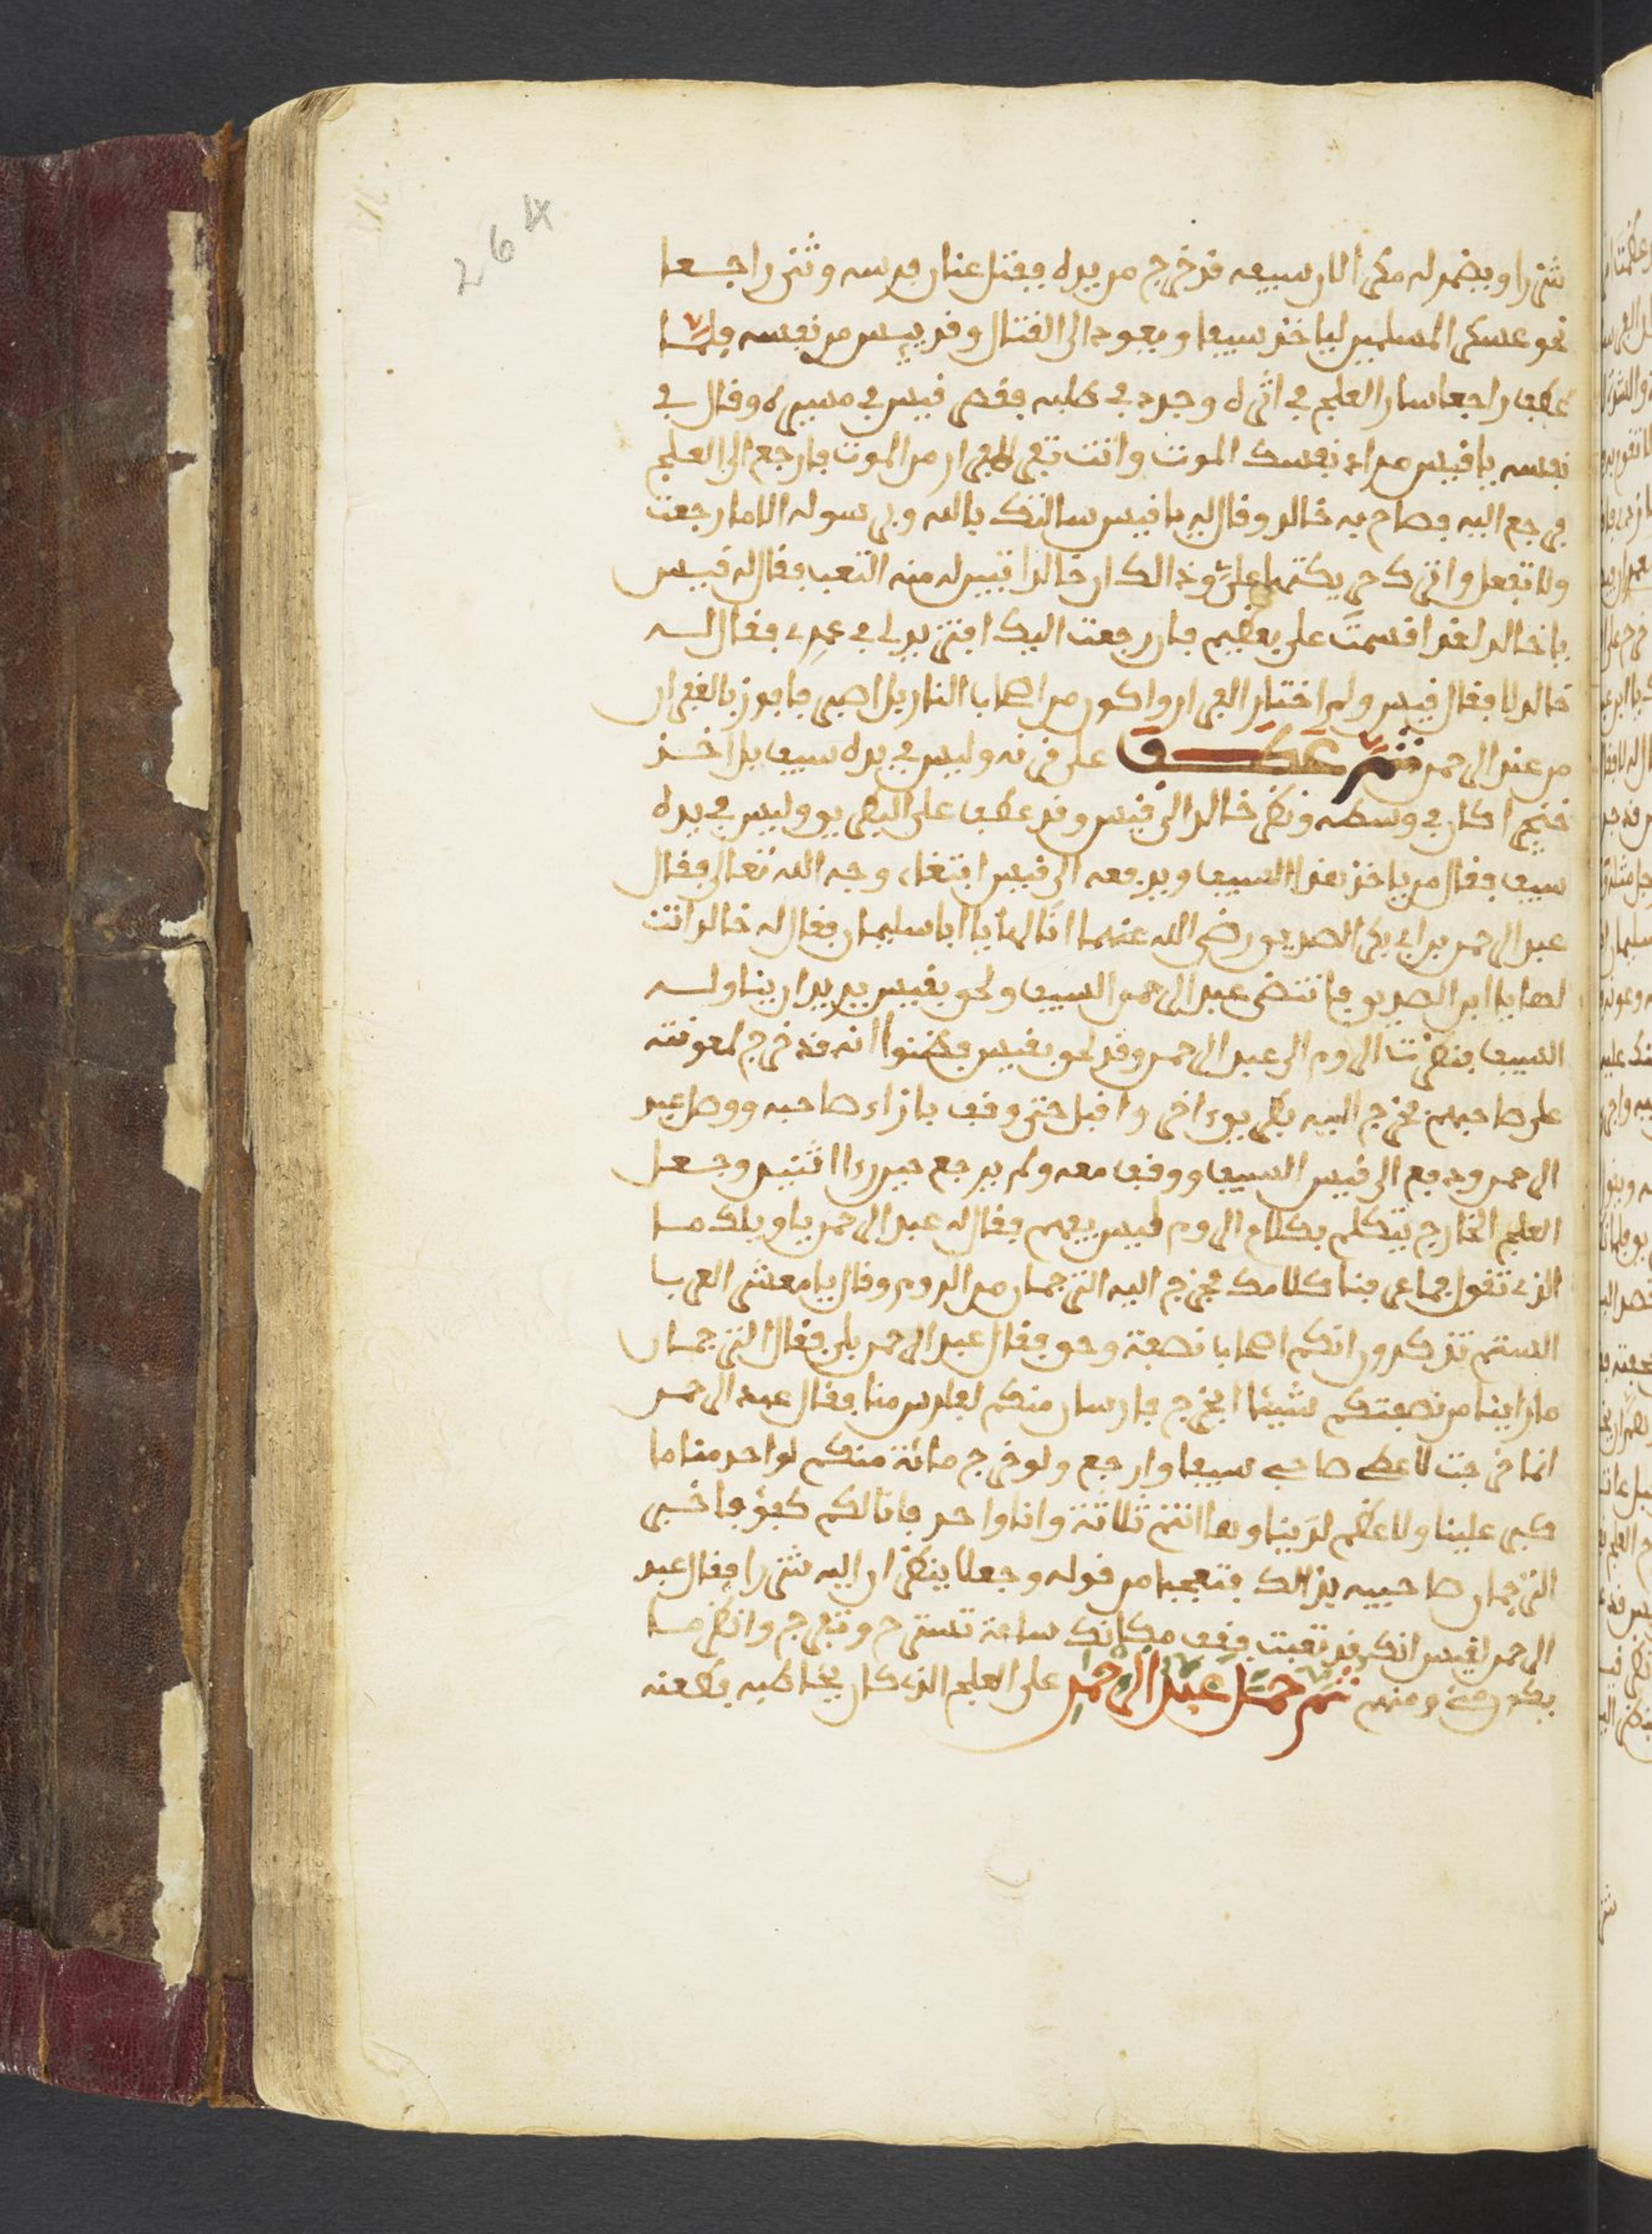 264
شزرا ويضمر له مكرا لان سيفه قد خرج من يده ففتل عنان فرسه وثنى راجعا
نحو عسكر المسلمين لياخذ سيفا ويعود الى القتال وقد ييس من نفسه فلما
عطف راجعا سار العلج في اثره وجد في طلبه فقصر قيس في مسيره وقال في
نفسه يا قيس مراد نفسك الموت وانت تفر الفرار من الموت فارجع الى العلج
فرجع اليه فصاح به خالد وقال له يا قيس سالتك بالله وبرسوله الا ما رجعت
ولا تفعل واتركني يكتبها علي وذالك ان خالدا تبين له منه التعب فقال له قيس
يا خالد لقد اقسمت علي بعظيم فان رجعت اليك اتزيد لي في عمري فقال له
خالد لا فقال قيس ولم اختار الفرار واكون من اصحاب النار بل اصبر فافوز بالغفران
من عند الرحمن ثم عطف على قرنه وليس في يده سيف بل اخذ
خنجرا كان في وسطه ونظر خالد الى قيس وقد عطف على البطريق وليس في يده
سيف فقال من ياخذ هذا السيف ويدفعه الى قيس ابتغاء وجه الله تعالى فقال
عبد الرحمن بن ابي بكر الصديق رضي الله عنهما انا لها يا ابا سليمان فقال له خالد انت
لها يا ابن الصديق فانتضى عبد الرحمن السيف ولحق بقيس يريد ان يناوله
السيف فنظرت الروم الى عبد الرحمن وقد لحق بقيس فظنوا انه قد خرج لمعونته
على صاحبهم فخرج اليه بطريق اخر واقبل حتى وقف بازاء صاحبه ووصل عبد
الرحمن ودفع الى قيس السيف ووقف معه ولم يرجع حين راا اثنين وجعل
العلج الخارج يتكلم بكلام الروم ليس يفهم فقال له عبد الرحمن يا ويلك ما
الذي تقول فما عرفنا كلامك فخرج اليه الترجمان من الروم وقال يا معشر العرب
الستم تذكرون انكم اصحاب نصفة وحق فقال عبد الرحمن بلى فقال الترجمان
ما راينا من نصفتكم شيئا ايخرج فارسان منكم لفارس منا فقال عبد الرحمن
انما خرجت لاعطي صاحبي سيفا وارجع ولو خرج مائة منكم لواحد منا ما
كبر علينا ولا عظم لدينا وها انتم ثلاثة وانا واحد فانا لكم كفؤ فاخبر
الترجمان صاحبيه بذالك فتعجبا من قوله وجعلا ينظران اليه شزرا فقال عبد
الرحمن لقيس انك قد تعبت فقف مكانك ساعة تستريح وتفرج وانظر ما
ومنهم ثم حمل عبد الرحمن على العلج الذي كان يخاطبه بطعنه